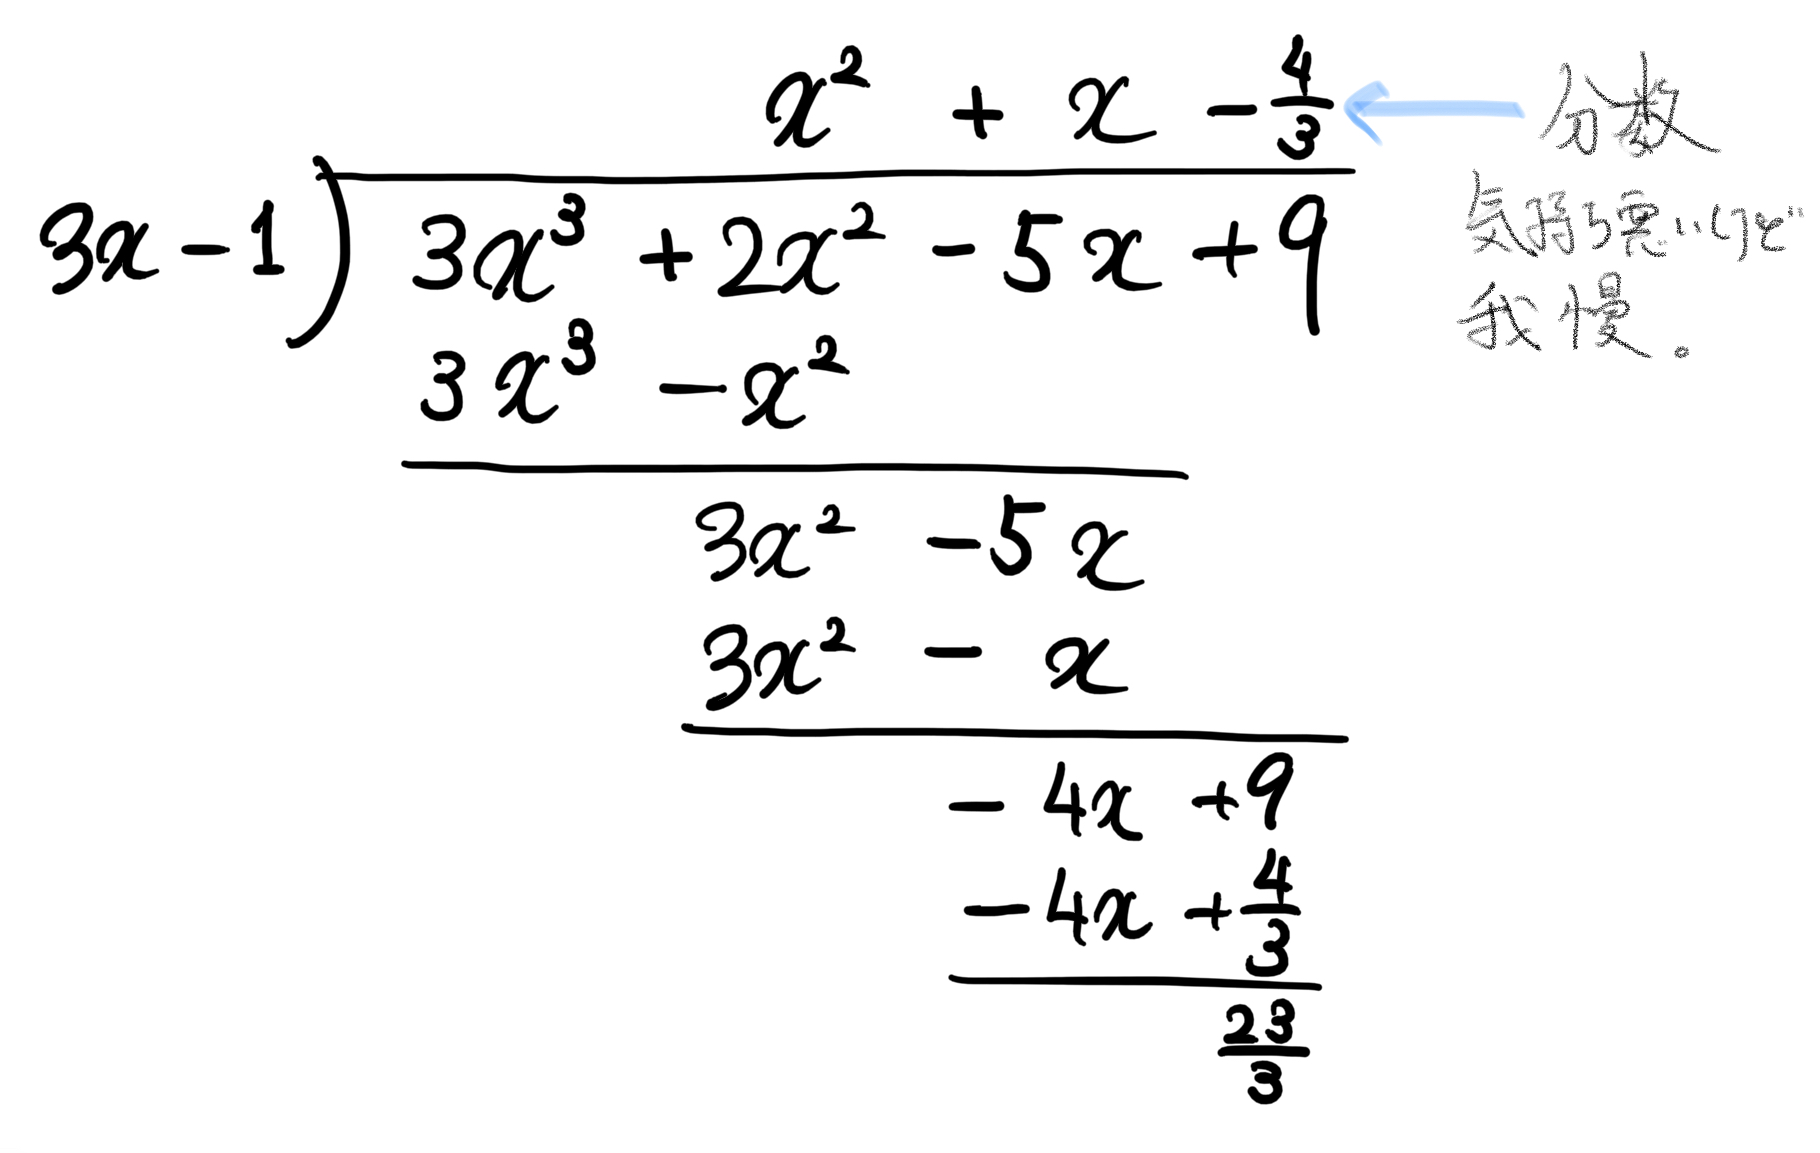 x² + x - 4/3 ← 分数
気持ち悪いけど
我慢。
3x - 1 ) 3x³ + 2x² - 5x + 9
3x³ - x²
3x² - 5x
3x² - x
- 4x + 9
- 4x + 4/3
23/3